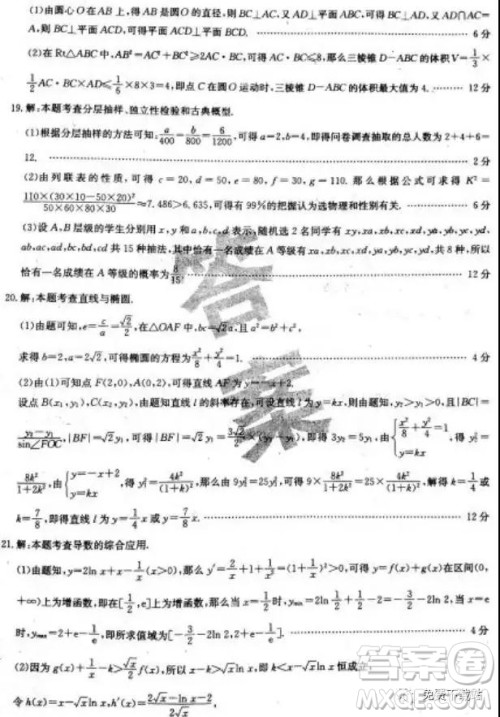 (1)由圆心O在AB上,得AB是圆O的直径,则BC⊥AC,又AD⊥BC,又AD∩AC=
A,所以BC⊥平面ACD,可得平面ACD⊥平面BCD. 6分
(2)在Rt△ABC中,AB²=AC²+BC²≥2AC·BC,可得AC·BC≤8,那么三棱锥D—ABC的体积V=1/3×
1/2AC·BC×AD≤1/6×8×3=4,所以点C在圆O运动时,三棱锥D—ABC的体积最大值为4. 12分
19.解:本题考查分层抽样、独立性检验和古典概型.
(1)根据分层抽样的方法可知:a/400=b/800=6/1200,可得a=2,b=4,即得问卷调查抽取的总人数为2+4+6=
12. 2分
(2)由列联表的性质,可得c=20,d=50,e=80,f=30,g=110.那么根据公式可求得K²=
110×(30×10-50×20)²/(50×60×80×30)≈7.486>6.635,可得有99%的把握认为选物理和性别有关. 6分
(3)设A、B层级的学生分别用x,y,a,b,c,d表示,随机选2名同学有xy,xa,xb,xc,xd,ya,yb,yc,yd,
ab,ac,ad,bc,bd,cd共15种抽法,其中恰有一名成绩在A等级的有xa,xb,xc,xd,ya,yb,yc,yd,共8种,所以
恰有一名成绩在A等级的概率为8/15. 12分
20.解:本题考查直线与椭圆.
(1)由题可知,e=c/a=√2/2,在△OAF中,bc=√2a,且a²=b²+c²,
求得b=2,a=2√2,可得椭圆的方程为x²/8+y²/4=1. 4分
(2)由(1)可知点F(2,0),A(0,2),可得直线AF为y=-x+2,
设点B(x₁,y₁),C(x₂,y₂),由题知直线l的斜率存在,可设直线l为y=kx,则由题可知,y₂>y₁>0,且|BC|=
y₂-y₁/sin∠FOC,|BF|=√2y₁,可得|BF|=√2y₁=
8k²/1+2k²,由{y=-x+2 y=kx},得y₁²=4k²/(1+k)²,那么可得9×8k²/1+2k²=25×4k²/(1+k)²,解得k=1/4或
k=7/8,即得直线l为y=1/4x或y=7/8x. 12分
21.解:本题考查导数的综合应用.
(1)由题知,y=2ln x+x-1/x(x>0),那么y′=2/x+1+1/x²>0(x>0),可得y=f(x)+g(x)在区间(0,
+∞)上为增函数,即在[1/2,e]上为增函数,
时,yₘₐₓ=2+e-1/e,所以所求值域为[-3/2-2ln 2,2+e-1/e]. 4分
(2)因为g(x)+1/x
-k=x-2ln x-k√x恒成立,
令h(x)=x-√xln x,h′(x)=2√x-ln x-2/2√x,
答案
答案圈
免费下载站